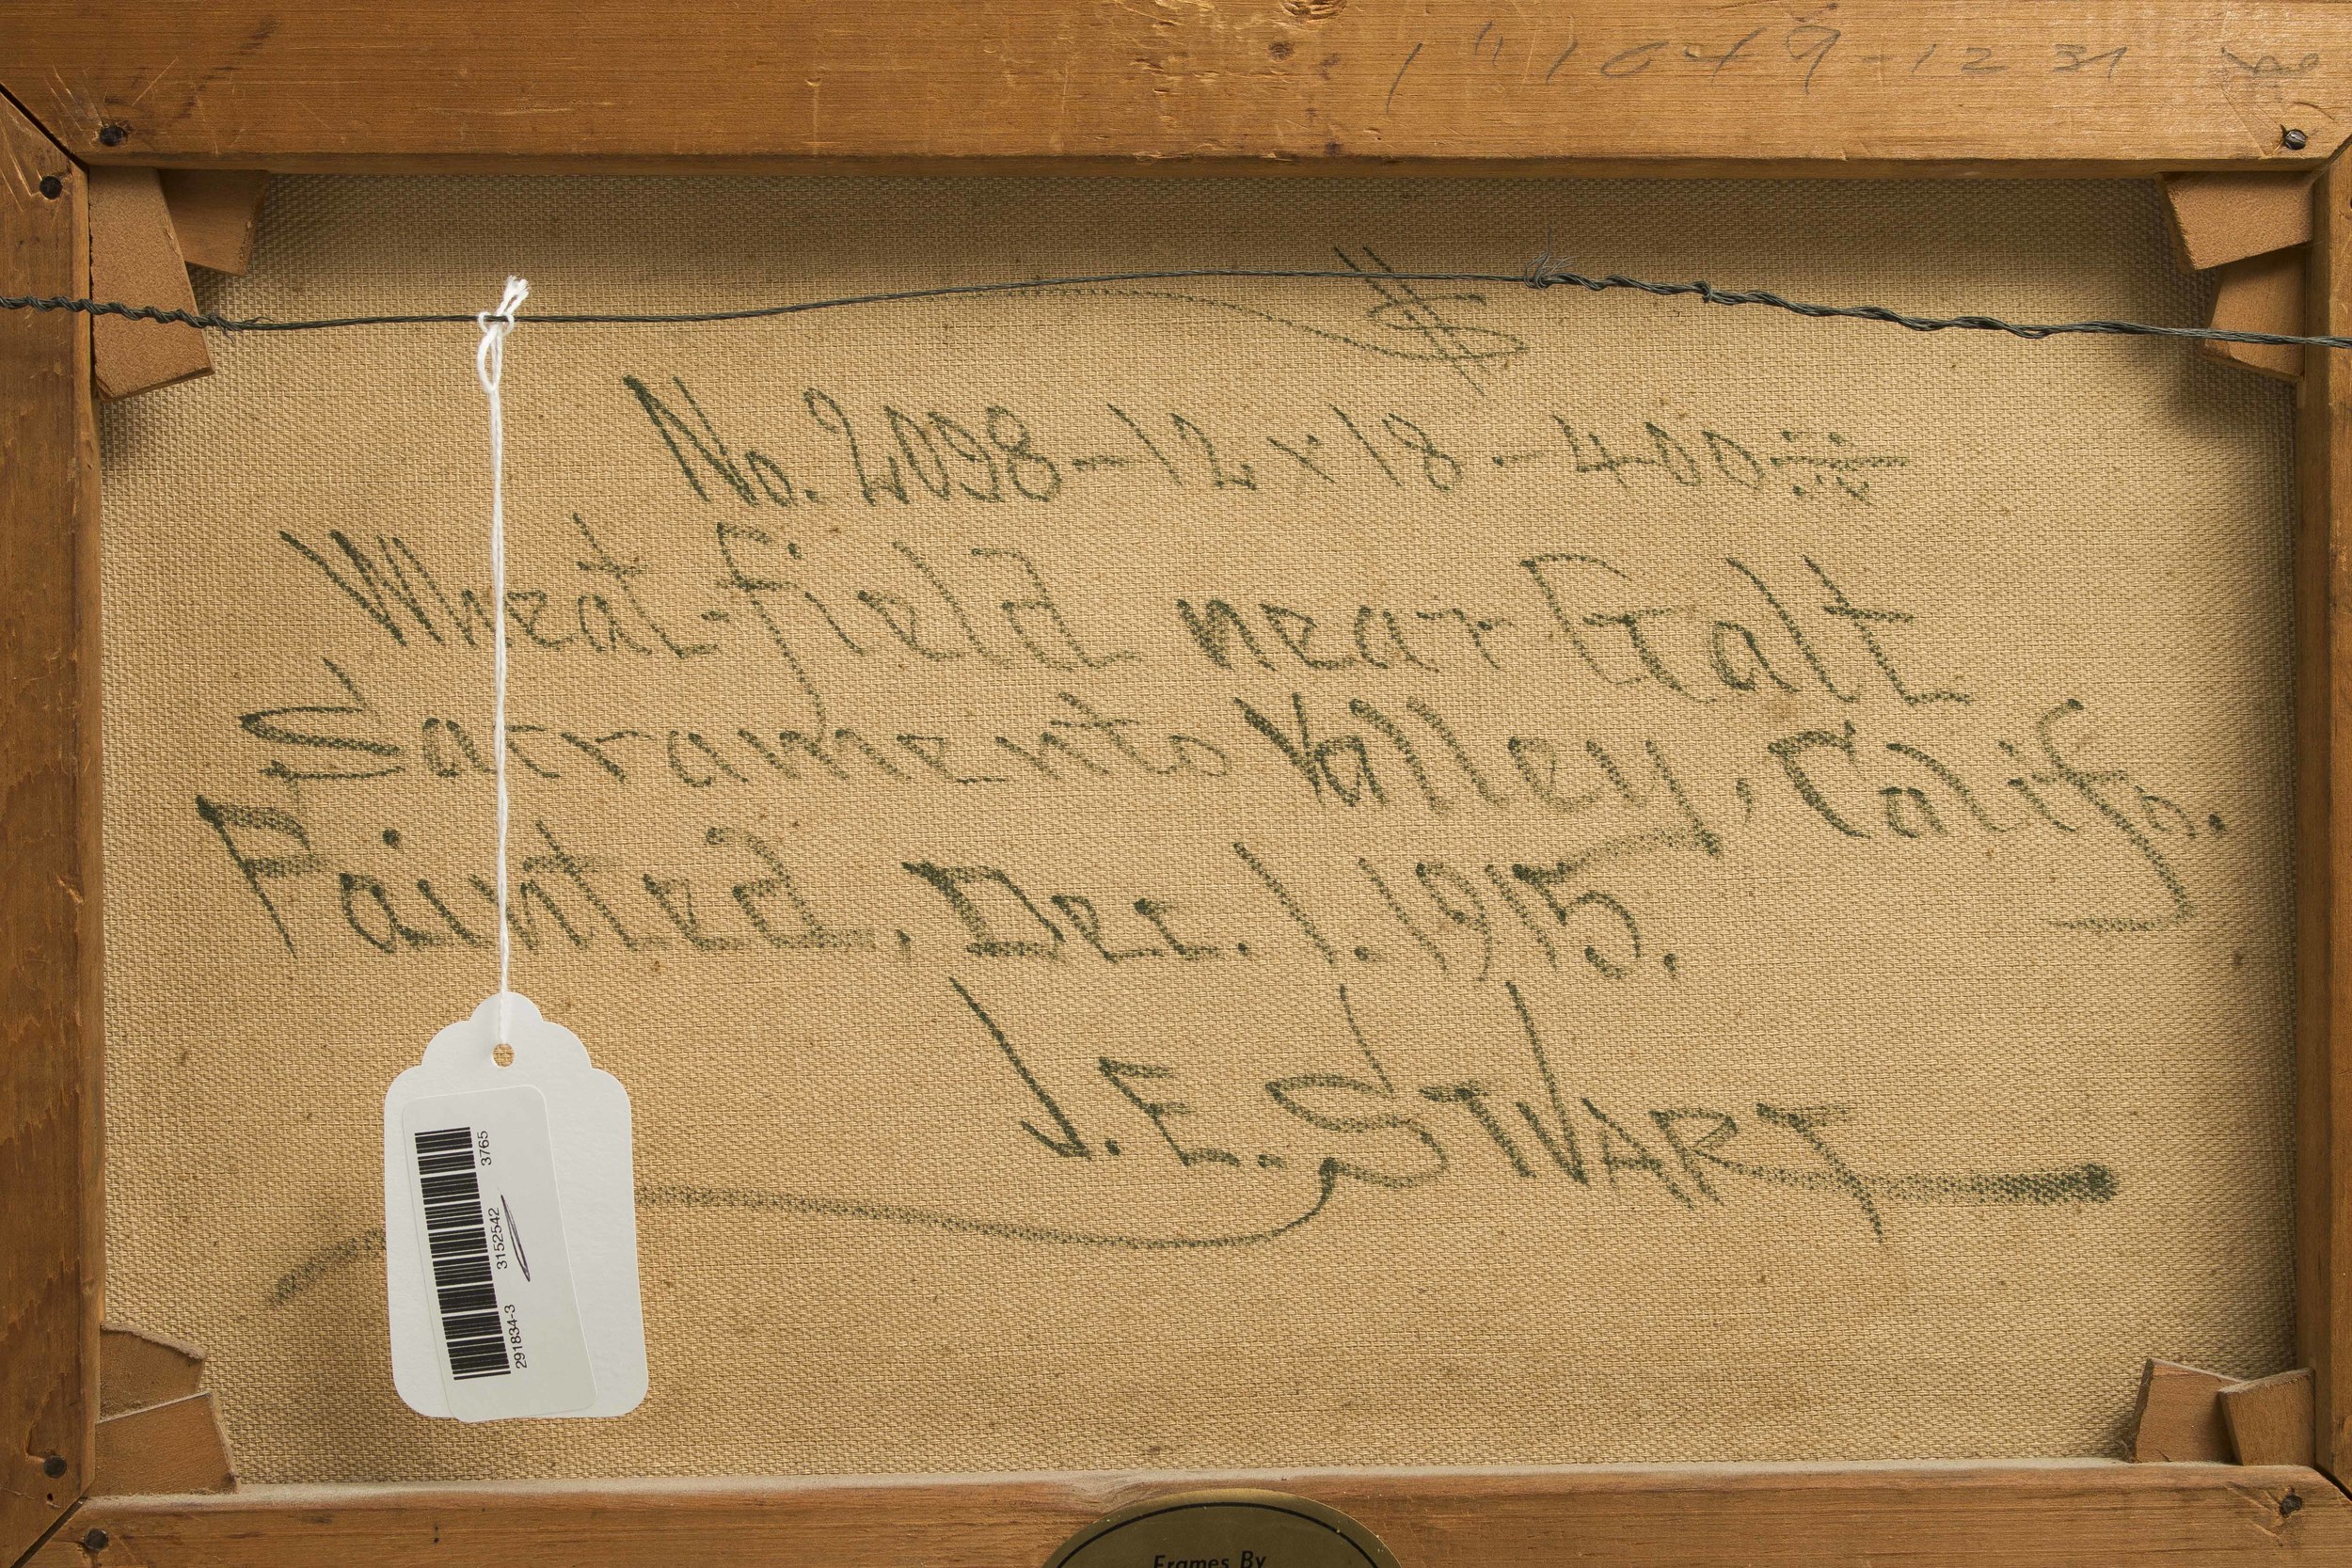 1" 1049-1231
$
No. 2098-12x18-400
Wheat-field near Galt
Sacramento Valley, Califo.
Painted. Dec. 1. 1915.
J.E. STUART
3765
3152542
291834-3
Frames By